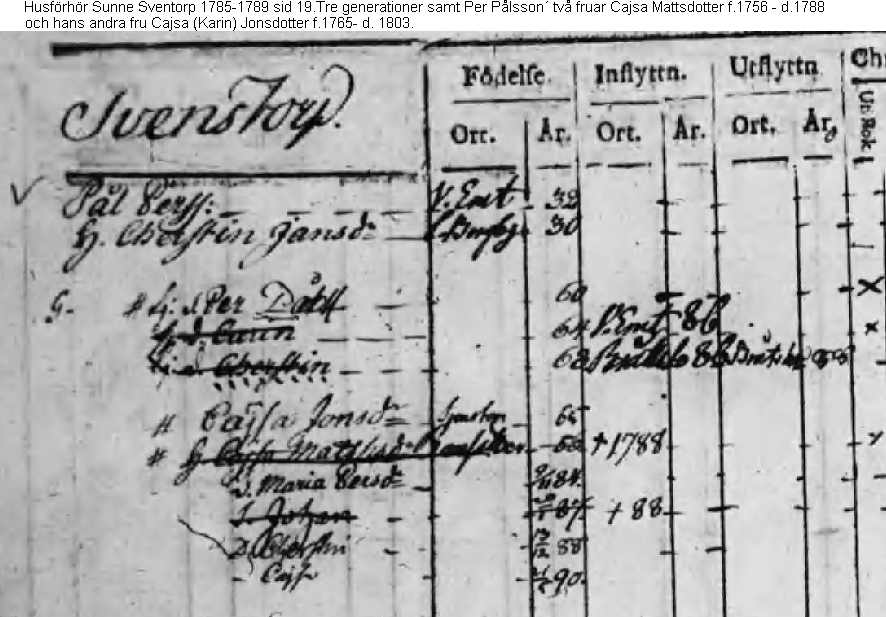 Husförhör Sunne Sventorp 1785-1789 sid 19.Tre generationer samt Per Pålsson´ två fruar Cajsa Mattsdotter f.1756 - d.1788
och hans andra fru Cajsa (Karin) Jonsdotter f.1765- d. 1803.
Födelse. Inflyttn. Utflyttn Chr
Svenstorp.
Ort. År. Ort. År. Ort. År Ut. Bok.
Pål Perss: V. Emt 32
H. Cherstin Jansd: 30
G. Per Pålss 60
S. d. Carin 64 V. Emt 86
Cherstin 68 86
Cajsa Jonsd: 65
H. Cajsa Mattsd: † 1788
D. Maria Persd: 84
S. Johan 87 † 88
D. Cherstin 88
- Cajsa 90